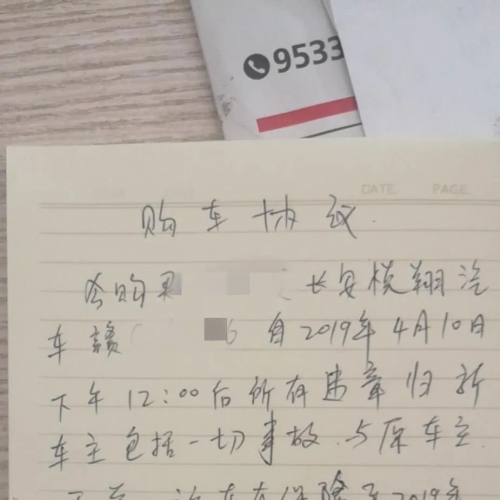 9533
DATE PAGE
购车协议
今购买 长安欧翔汽
车赣 6 自2019年4月10日
下午12:00后所有违章归新
车主包括一切事故 与原车主